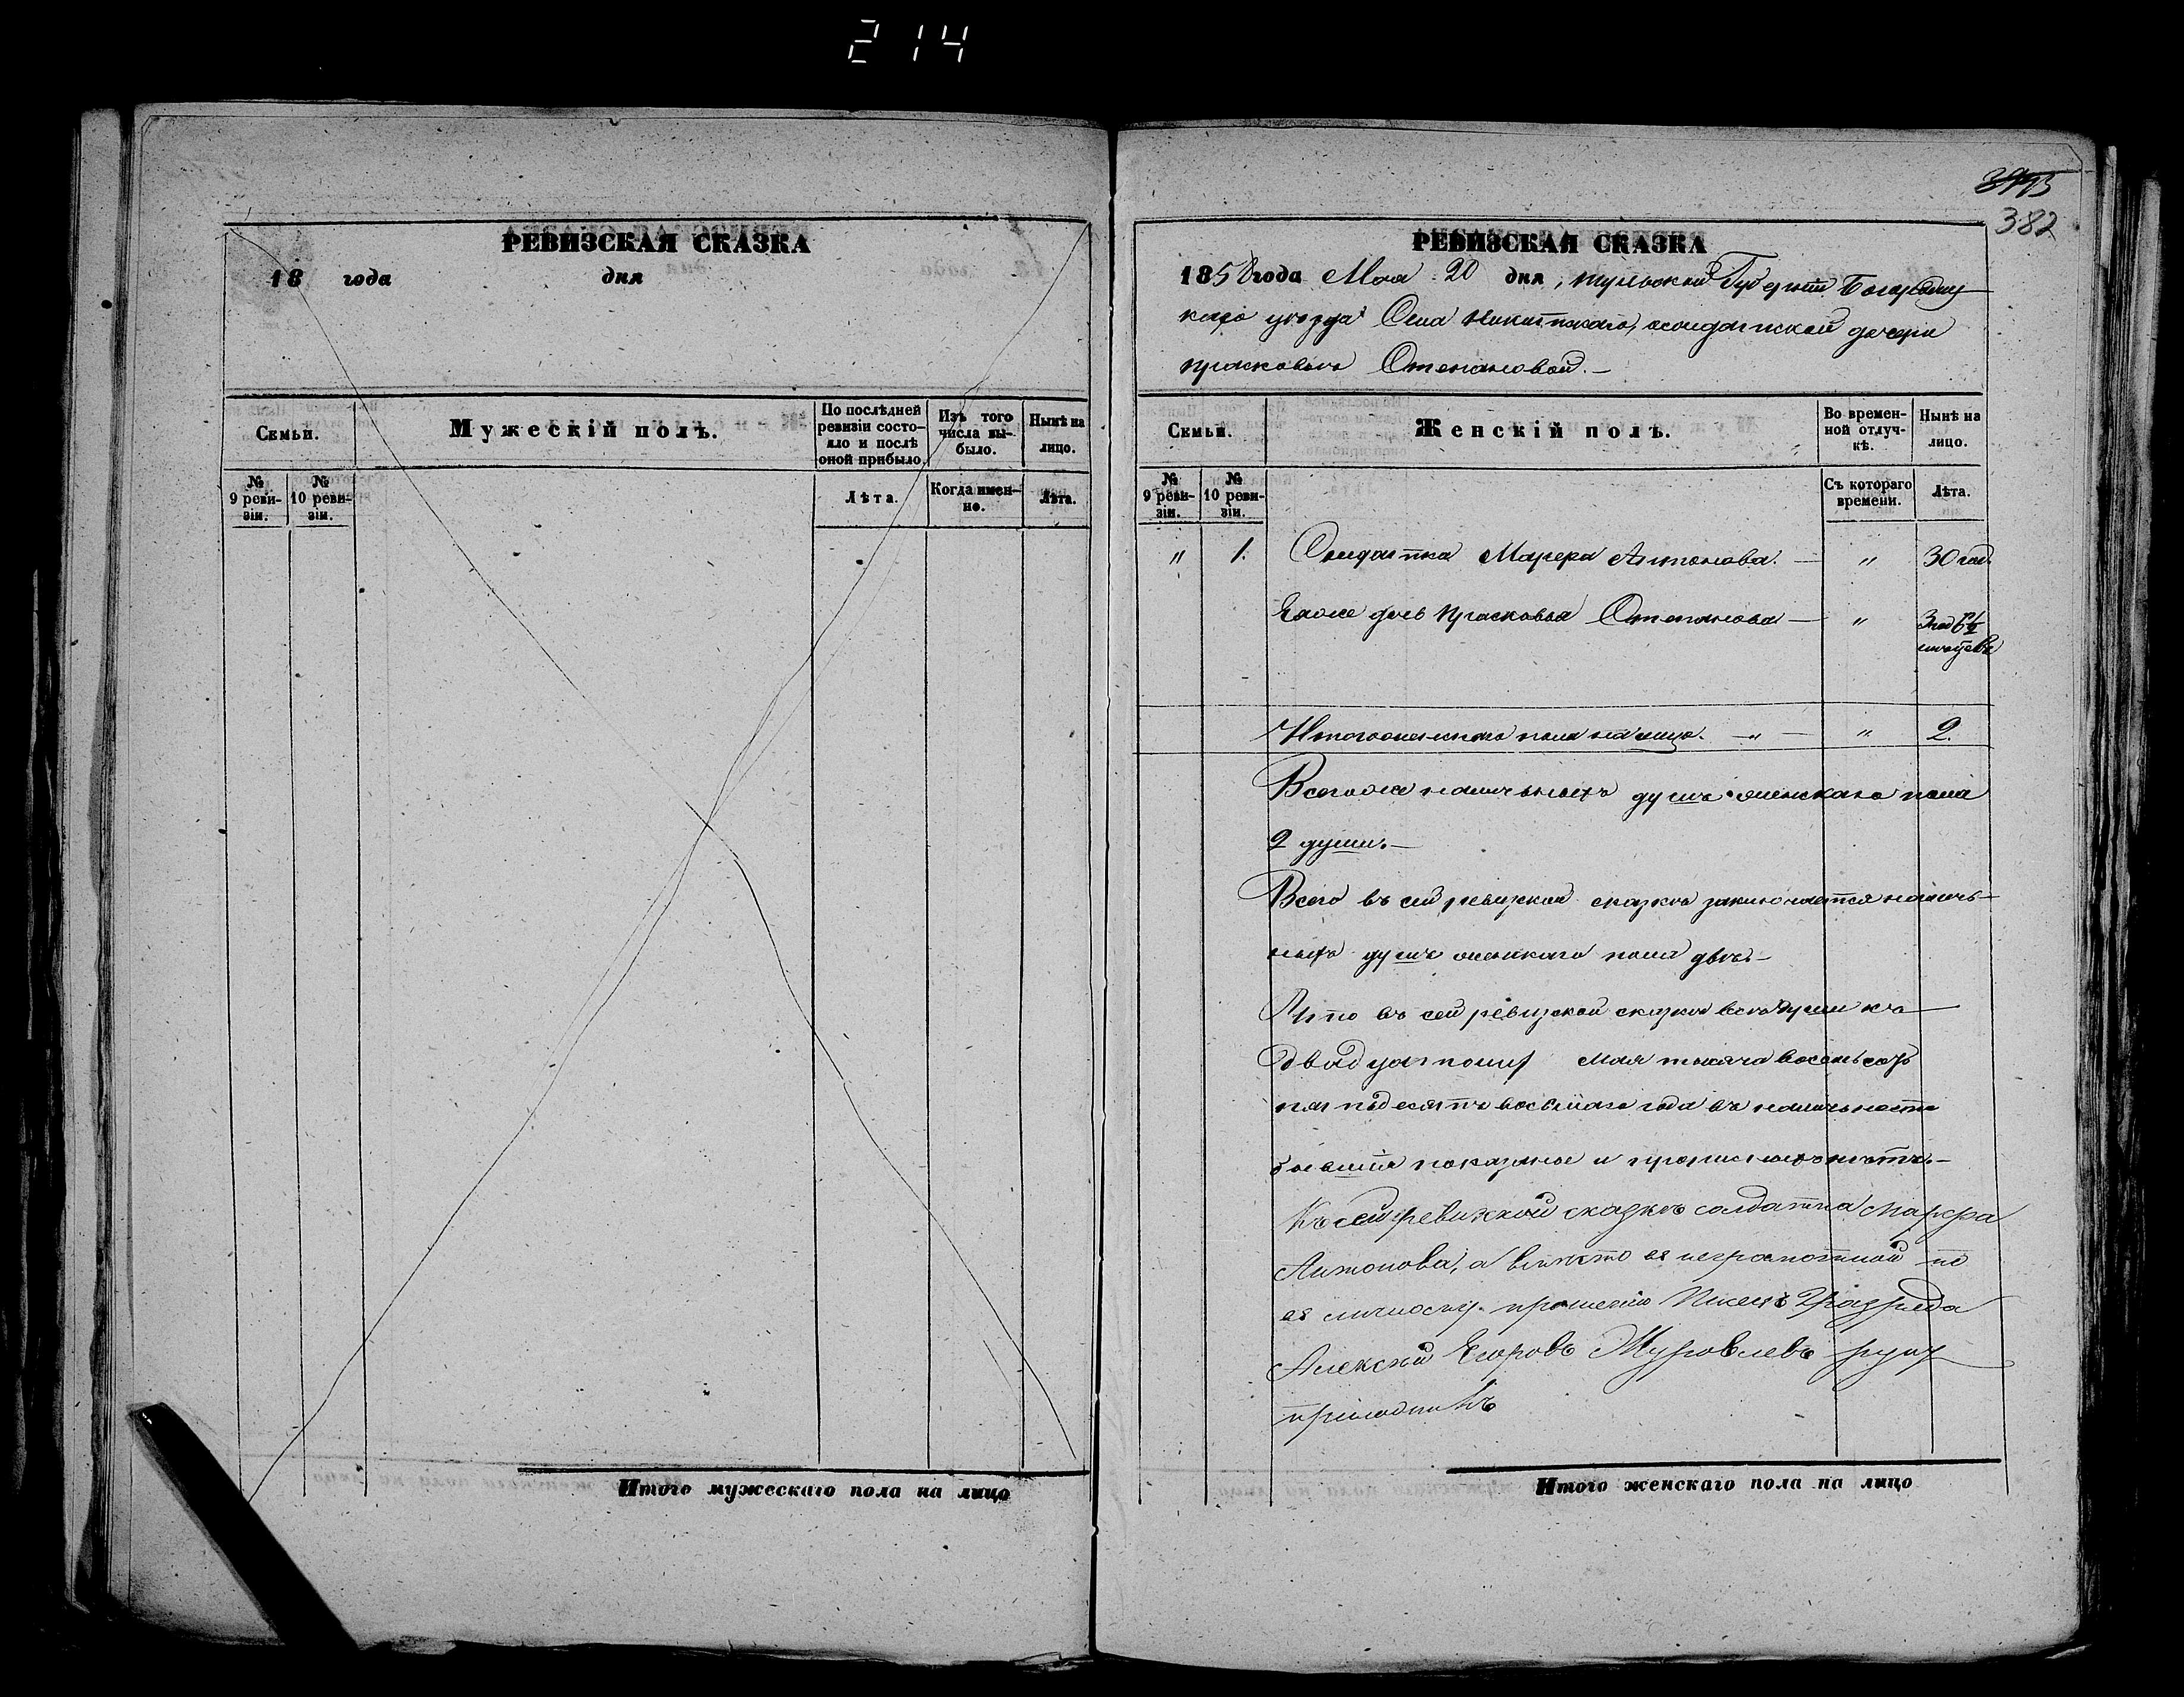 214
382
РЕВИЗСКАЯ СКАЗКА
18 года дня
Семьи.
Мужескій полъ.
По послѣдней ревизіи состояло и послѣ оной прибыло.
Изъ того числа выбыло.
Нынѣ на лицо.
№ 9 ревизіи.
№ 10 ревизіи.
Лѣта.
Когда именно.
Лѣта.
Итого мужескаго пола на лицо
РЕВИЗСКАЯ СКАЗКА
1858 года Мая 20 дня, Тульской Губерніи Богородиц
каго уѣзда Села Никитскаго, солдатской дочери
Прасковьи Степановой.—
Семьи.
Женскій полъ.
Во временной отлучкѣ.
Нынѣ на лицо.
№ 9 ревизіи.
№ 10 ревизіи.
Съ котораго времени.
Лѣта.
" 1. Солдатка Марѳра Антонова. — " 30 год.
Еяже дочь Прасковья Степанова — " 3 год 6 1/2
мѣсяцевъ
Итого женскаго пола на лицо. — " — " 2.
Всегоже наличныхъ душъ женскаго пола
2 души.—
Всего въ сей ревизской сказкѣ заключается налич-
ныхъ душъ женскаго пола двѣ.—
Что въ сей ревизской сказкѣ всѣ души къ
двадцатому Мая тысяча восемьсотъ
пятьдесятъ восьмаго года въ наличности
бывшія показаны и прописныхъ нѣтъ.—
Къ сей ревизской сказкѣ солдатка Марѳра
Антонова, а вмѣсто ея неграмотной по
ея личному прошенію Писецъ 2 разряда
Алексѣй Егоровъ Журовлевъ руку
приложилъ
Итого женскаго пола на лицо